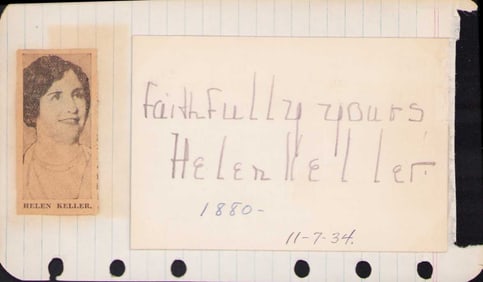 HELEN KELLER.
Faithfully yours,
Helen Keller.
1880-
11-7-34.